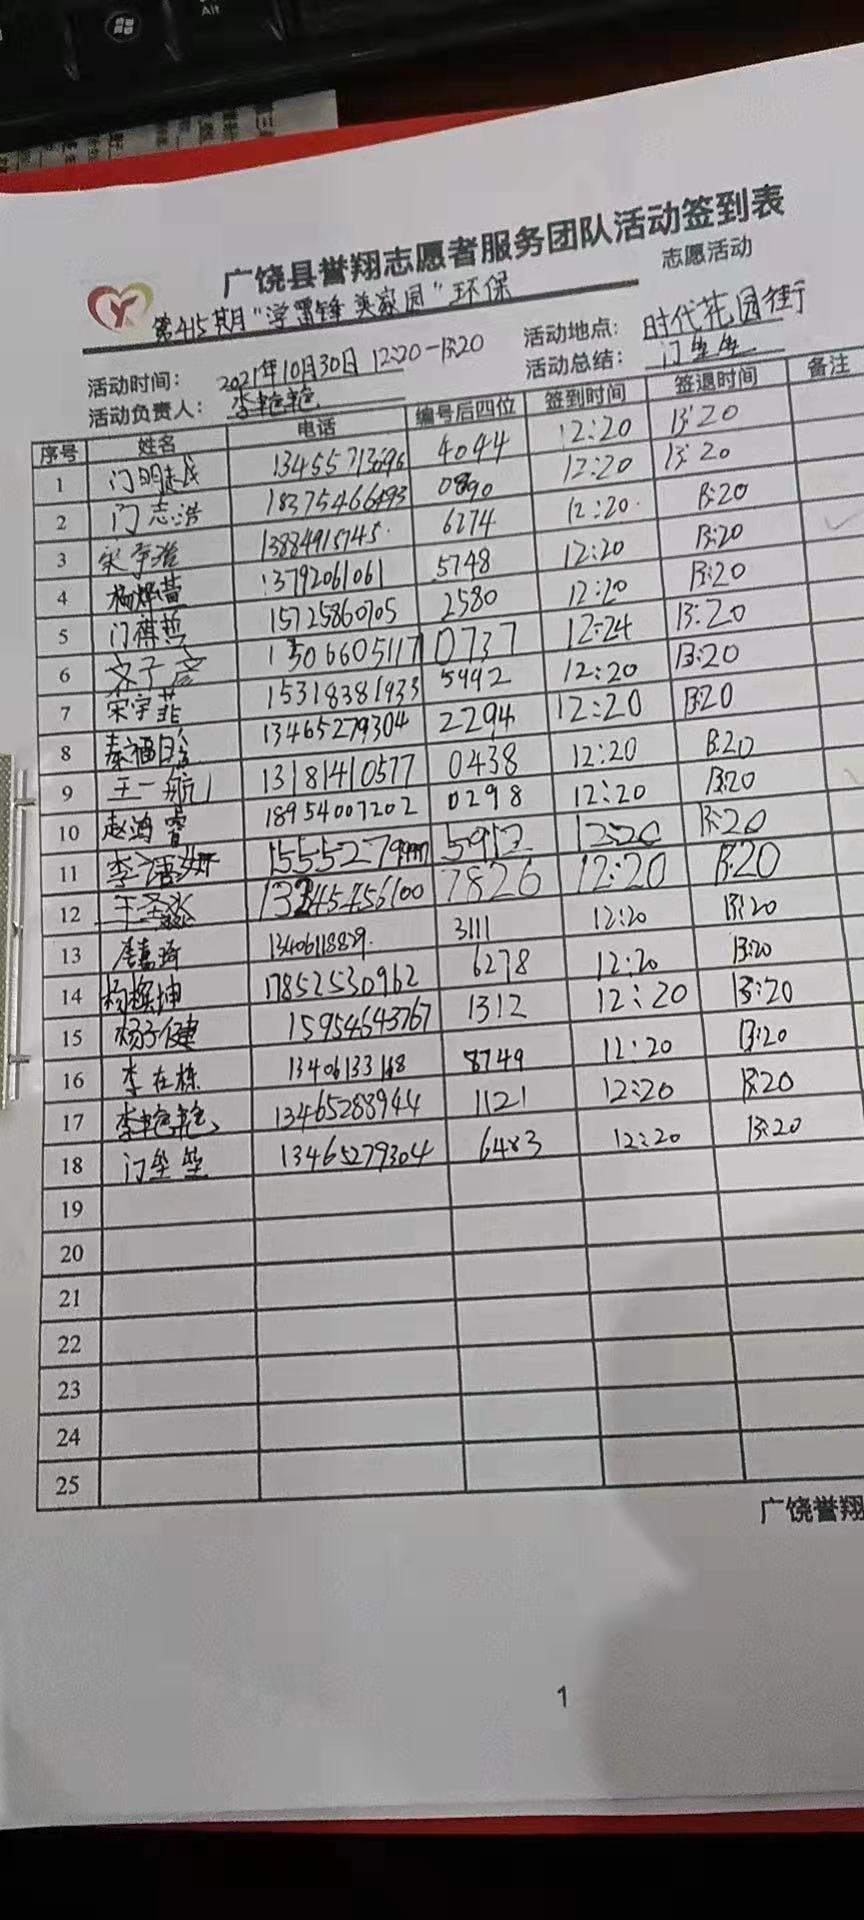 Alt
广饶县誉翔志愿者服务团队活动签到表
第415期"学雷锋 美家园"环保 志愿活动
活动时间: 2021年10月30日 12:20-13:20 活动地点: 时代花园街
活动负责人: 李艳艳 活动总结: 门垒垒
序号 姓名 电话 编号后四位 签到时间 签退时间 备注
1 门明 4044 12:20 13:20
2 门志浩 18375466493 0890 12:20 13:20
3 宋宇 13884915745 6274 12:20 13:20
4 杨 13792061061 5748 12:20 13:20
5 门祺哲 15725860705 2580 12:20 13:20
6 齐子彦 1506605117 0737 12:24 13:20
7 宋宇菲 15318381933 5992 12:20 13:20
8 秦福 13465279304 2294 12:20 13:20
9 王一航 13181410577 0438 12:20 13:20
10 赵鸿睿 18954007202 0298 12:20 13:20
11 李语妍 5912 12:20 13:20
12 王圣 7826 12:20 13:20
13 李嘉琦 13406118829 3111 12:20 13:20
14 杨 坤 17852530962 6278 12:20 13:20
15 杨子健 15954643767 1312 12:20 13:20
16 李在栋 13406133168 8749 12:20 13:20
17 李艳艳 13465288944 1121 12:20 13:20
18 门垒垒 13465279304 6483 12:20 13:20
19
20
21
22
23
24
25
广饶誉翔
1